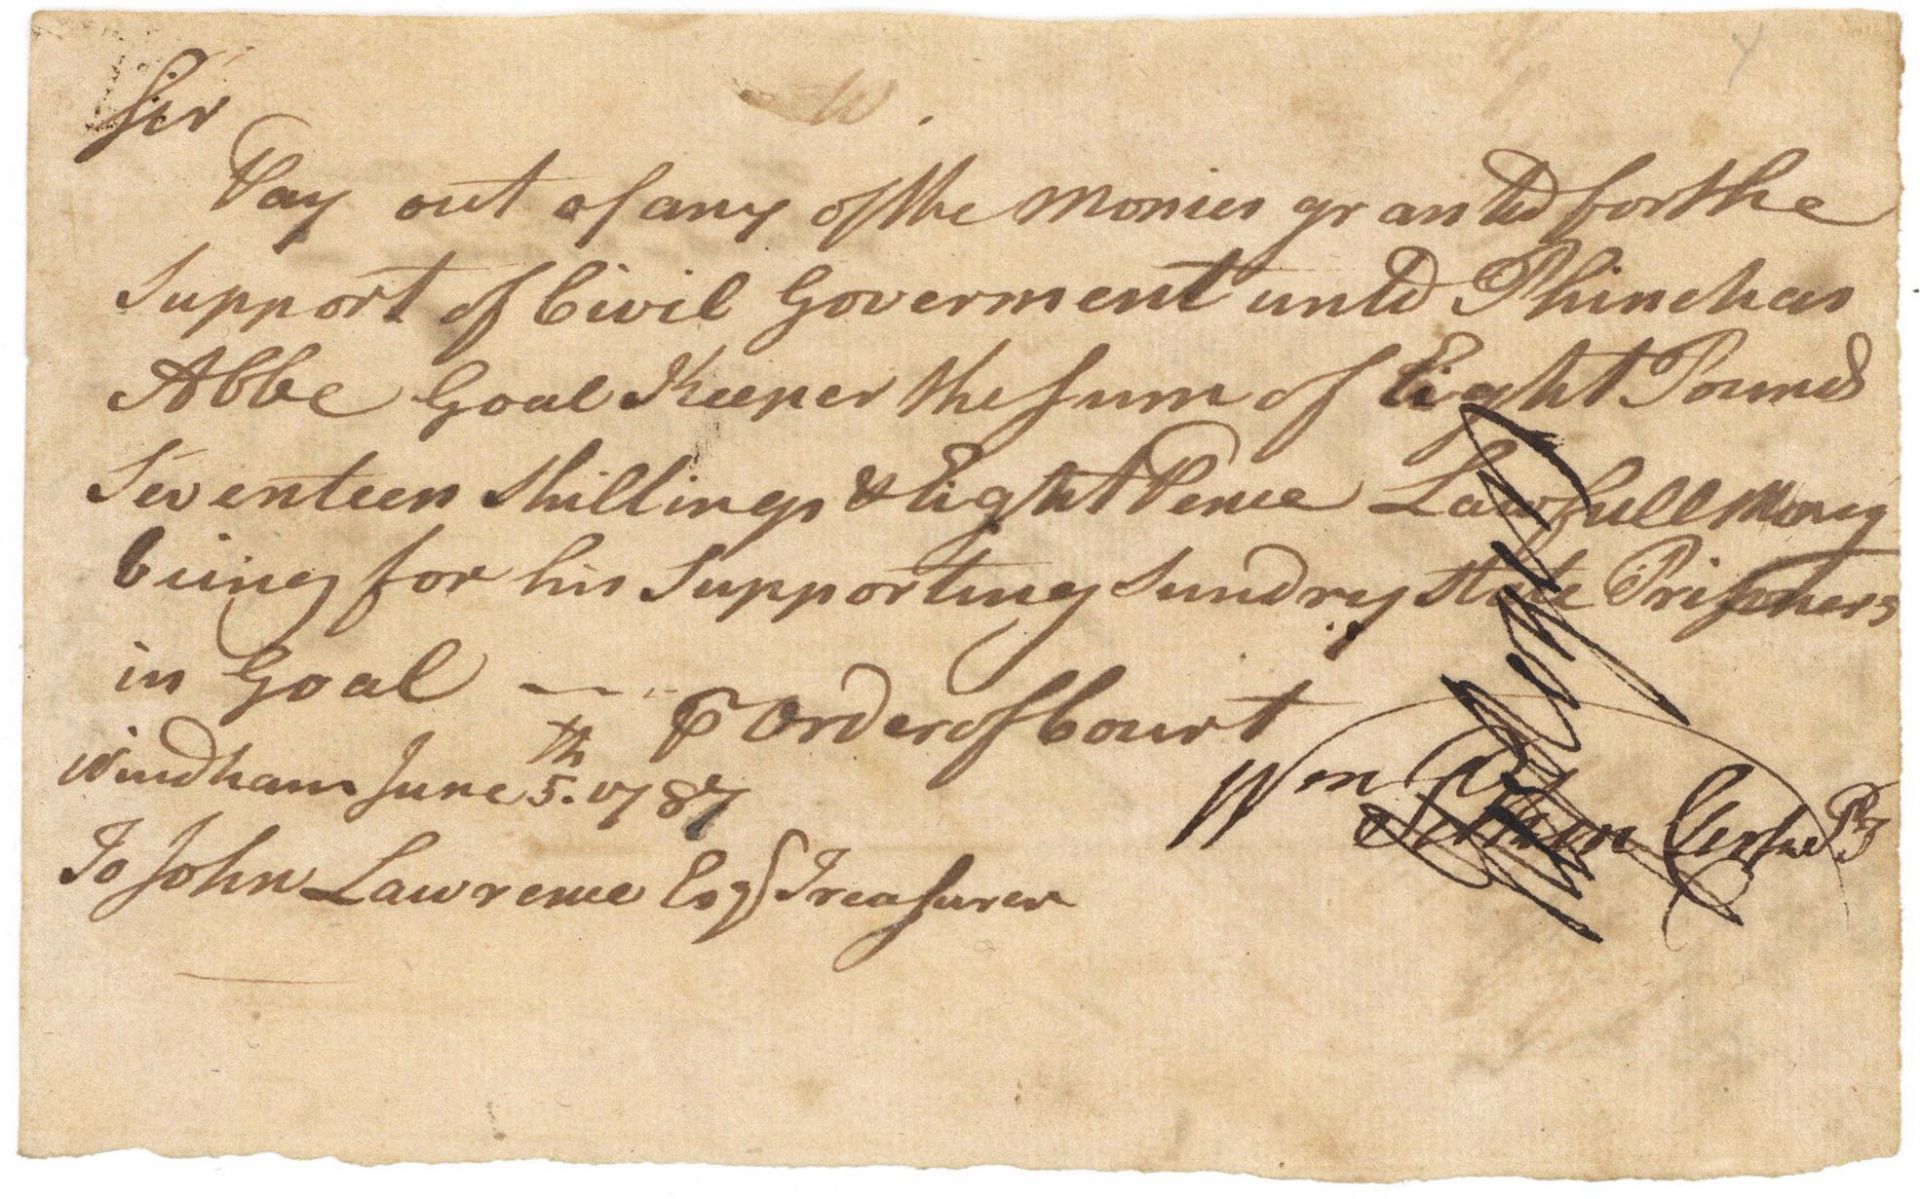 Sir
Pay out of any of the Monies granted for the
Support of Civil Goverment unto Phinehas
Abbe Goal Keeper the sum of Eight Pounds
Seventeen Shillings & Eight Pence Lawfull Money
being for his Supporting Sundry State Prisoners
in Goal — ⅌ Order of Court
Windham June 5th. 1787
Wm
To John Lawrence Esqr Treasurer